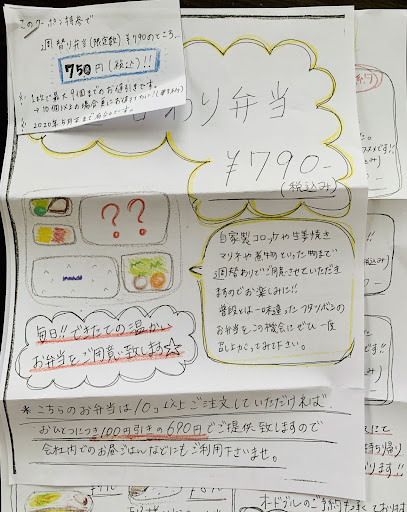 このクーポン持参で
週替り弁当(限定数) ¥790のところ、
750円(税込)!!
※ 1枚で最大9個までのお値引きです。
→10個以上の場合
※ 2020年5月
わり弁当
¥790-
(税込み)
??
自家製コロッケや生姜焼き
マリネや煮物といった物まで
週替わりでご用意させていただき
ますのでお楽しみに!!
普段とは一味違った
お弁当をこの機会にぜひ一度
召し上がってみて下さい。
毎日!!できたての温かい
お弁当をご用意致します☆
*こちらのお弁当は10コ以上ご注文していただければ、
おひとつにつき100円引きの690円でご提供致しますので
会社内でのお昼ごはんなどにもご利用下さいませ。
オードブルのご予約も承っております